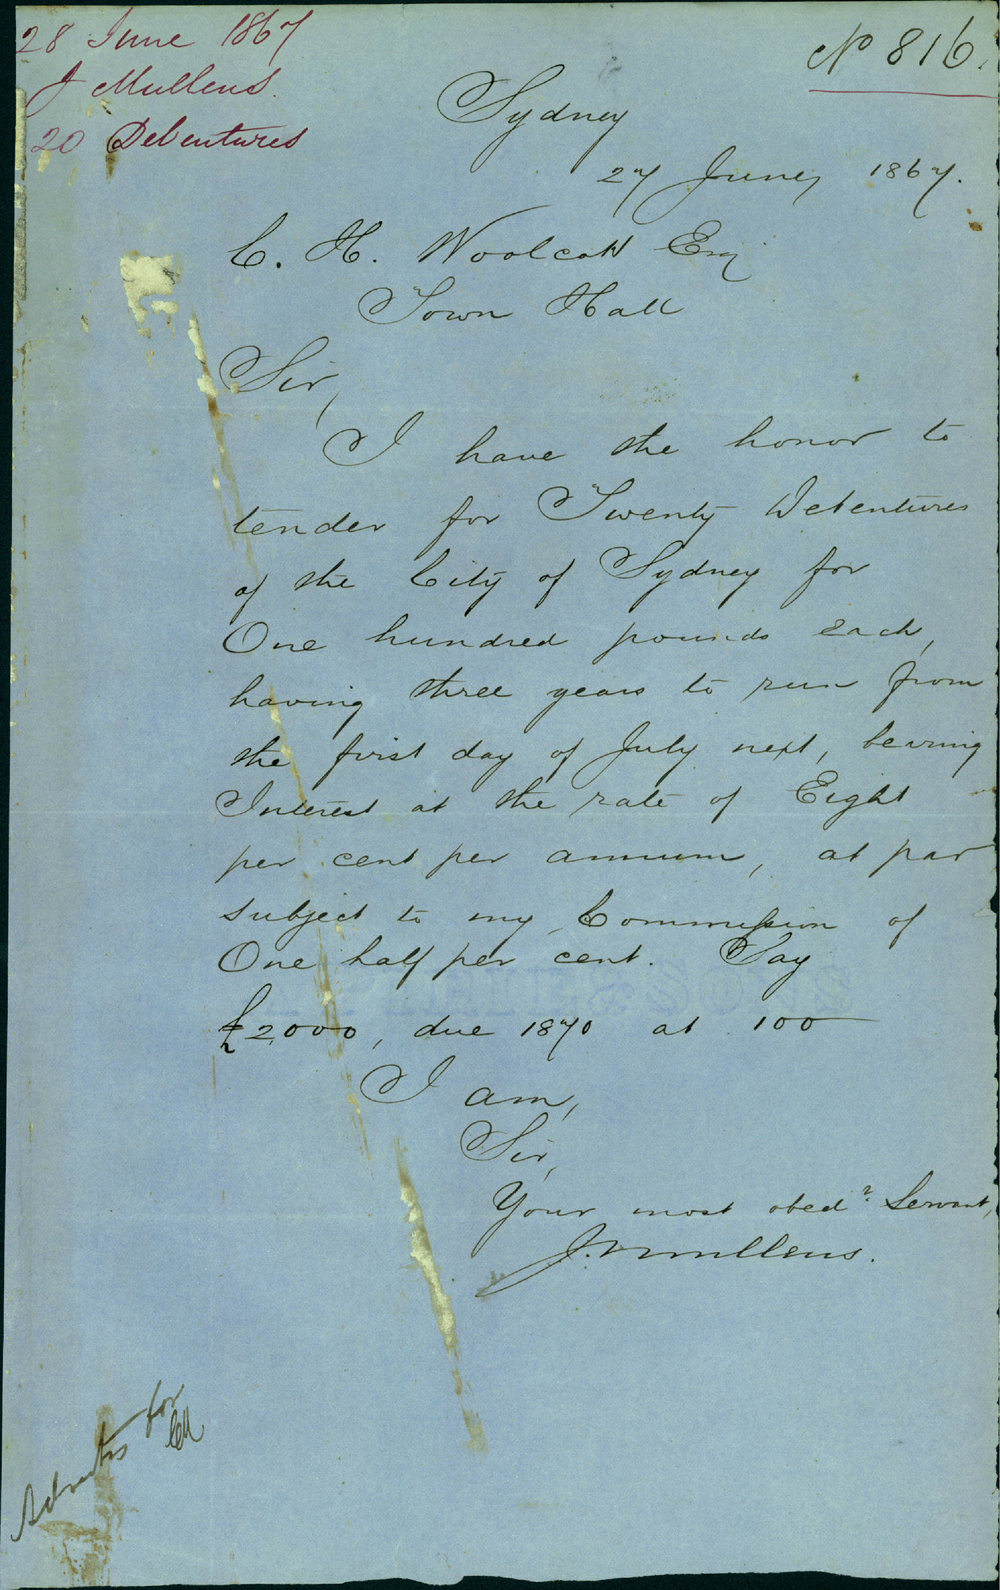 28 June 1867
J Mullens
20 Debentures
No 816.
Sydney
27 June, 1867.
C. H. Woolcott Esq
Town Hall
Sir,
I have the honor to
tender for Twenty Debentures
of the City of Sydney for
One hundred pounds each,
having three years to run from
the first day of July next, bearing
Interest at the rate of Eight
per cent per annum, at par
subject to my Commission of
One half per cent. Say
£2,000, due 1870 at 100
I am,
Sir,
Your most obedt Servant,
J. Mullens.
for